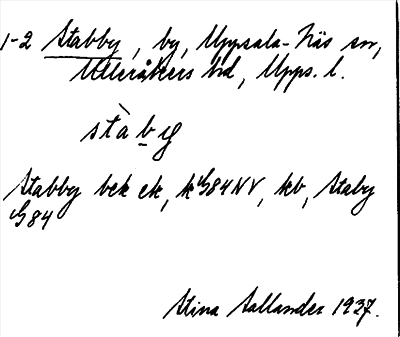 1-2 Stabby, by, Uppsala-Näs sn,
Ulleråkers hd, Upps. l.
stàby
Stabby bek ek, k G84NV, kb, Staby
G84
Stina Sallander 1937.